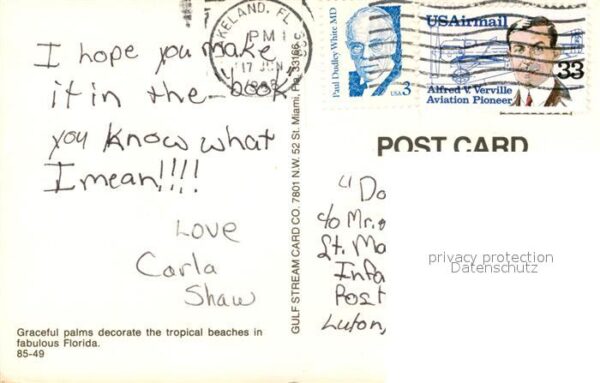 I hope you make
it in the book
you know what
I mean!!!!
Love
Carla
Shaw
Graceful palms decorate the tropical beaches in
fabulous Florida.
85-49
GULF STREAM CARD CO. 7801 N.W. 52 St. Miami, Fla. 33166
LAKELAND, FL
PM
17 JUN
Paul Dudley White MD
USA 3
USAirmail
33
Alfred V. Verville
Aviation Pioneer
POST CARD
"Do
c/o Mr.
St. Ma
Infa
Post
Luton,
privacy protection
Datenschutz